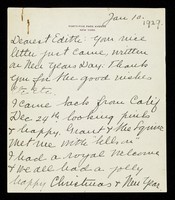 Jan 10.
1929.
Dearest Edith: you nice
little just came written
on New Years Day. Thanks
you for the good wishes
I came back from Calif
Dec 29th looking
happy. Grant & the
met me with
I had a royal welcome
& we all had a jolly
happy Christmas & New Year